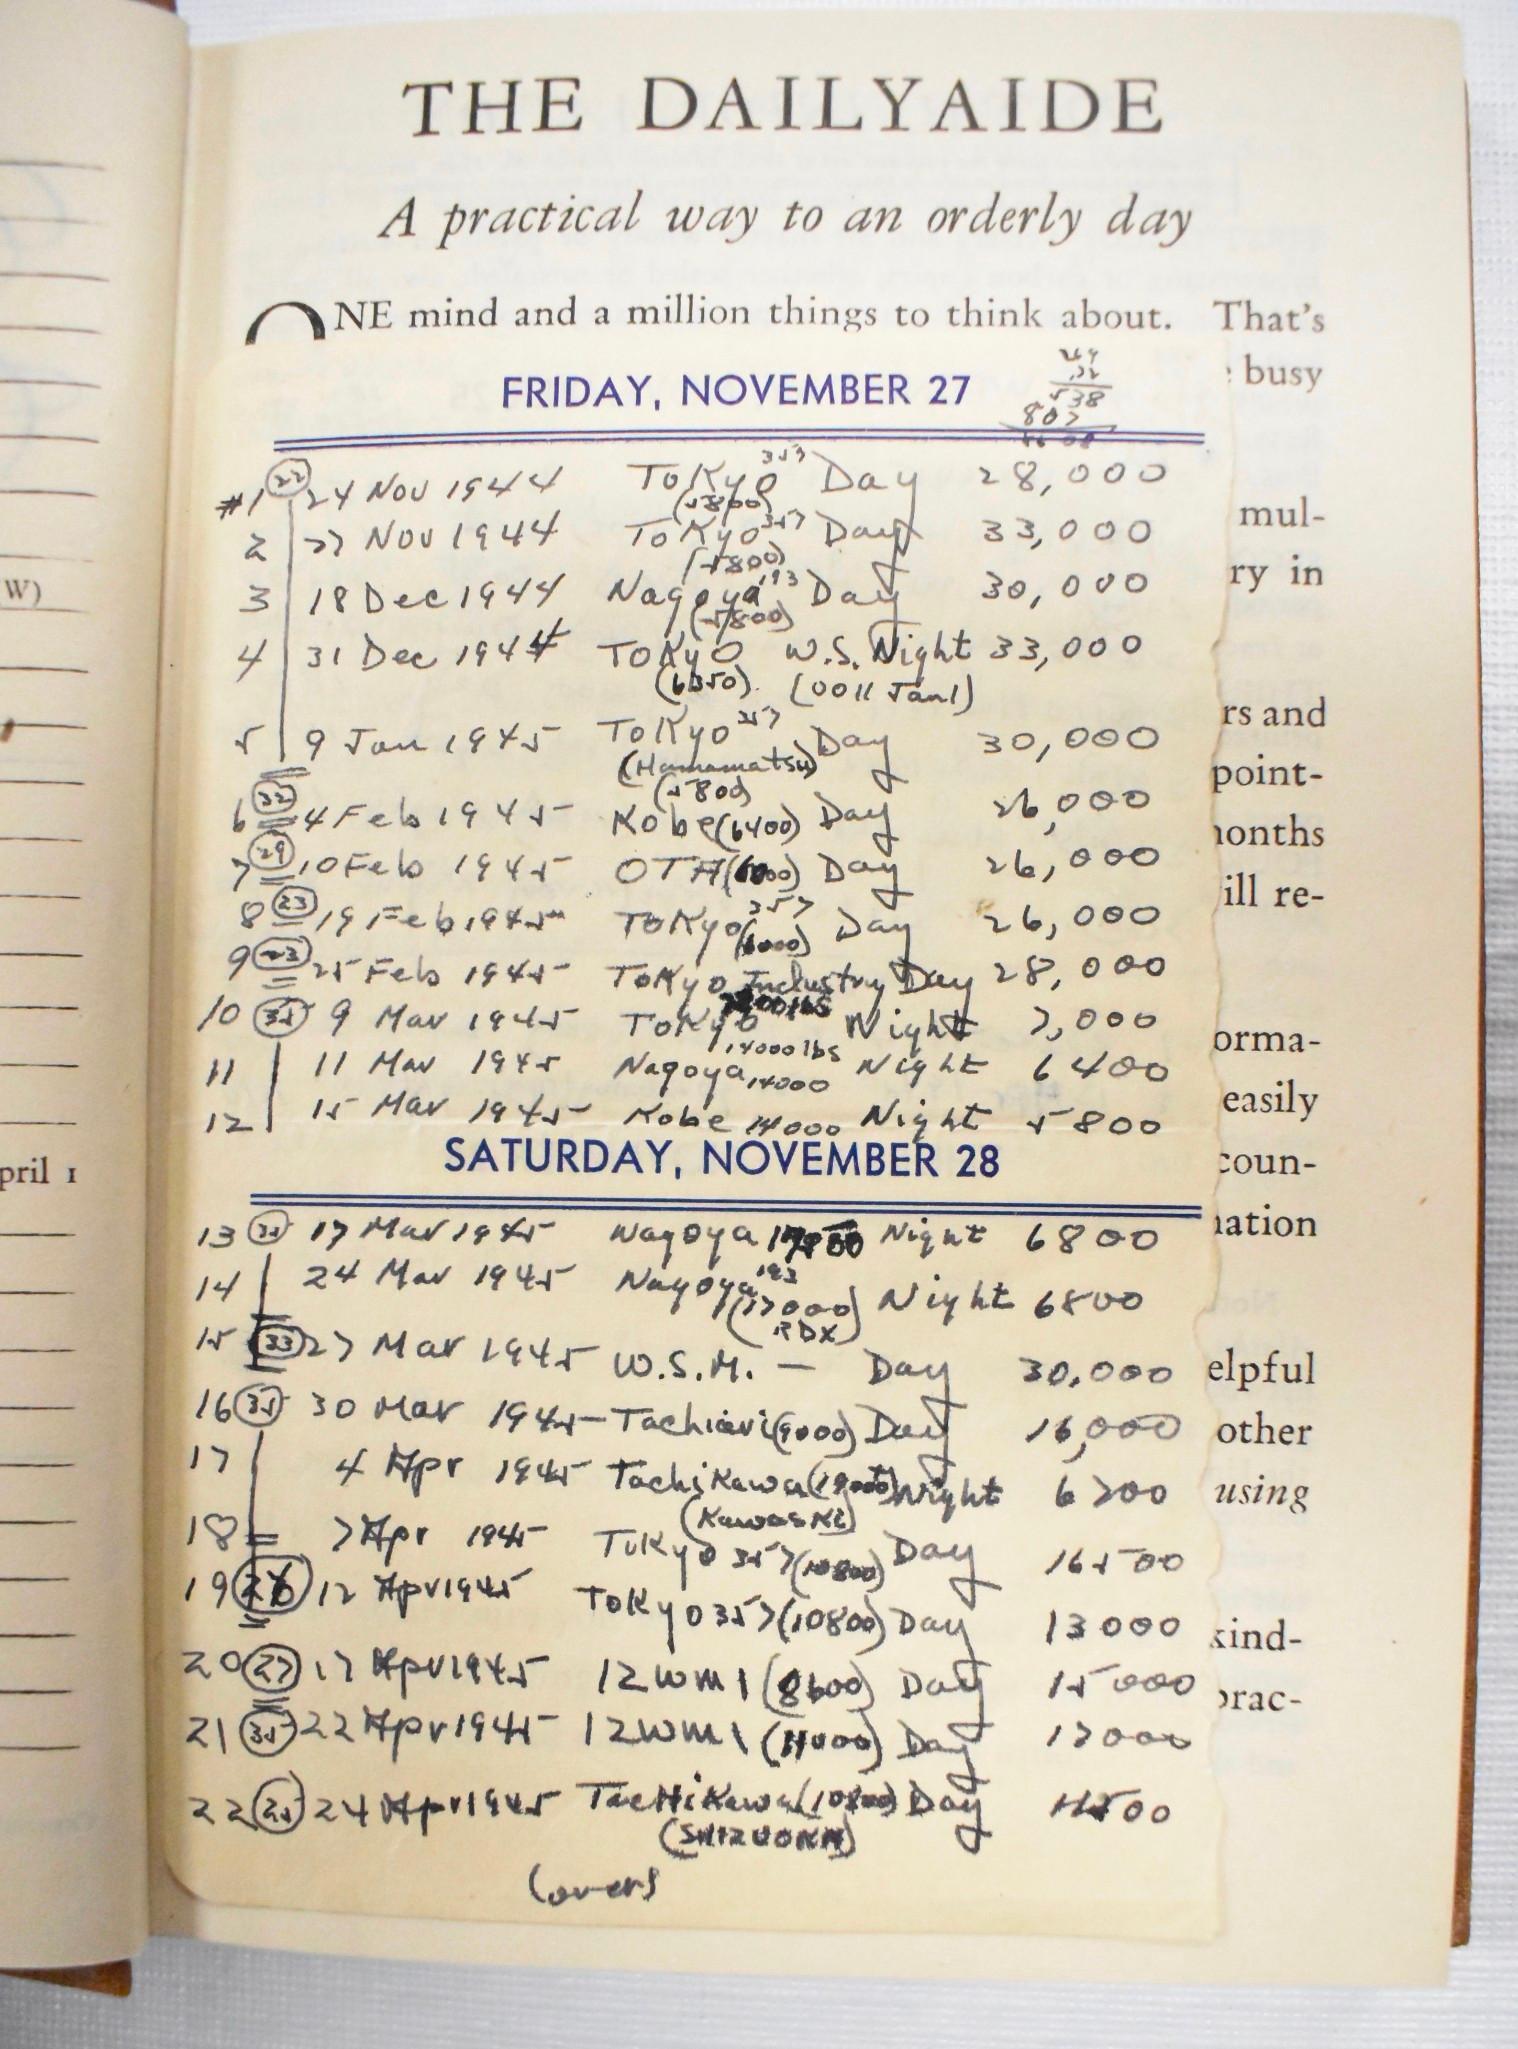 THE DAILYAIDE
A practical way to an orderly day
ONE mind and a million things to think about. That's
busy
FRIDAY, NOVEMBER 27
#1 22 24 Nov 1944 Tokyo 357 Day 28,000
(5800)
2 27 Nov 1944 Tokyo 357 Day 33,000
(5800)
3 18 Dec 1944 Nagoya 193 Day 30,000
(5800)
4 31 Dec 1944 Tokyo W.S. Night 33,000
(6350) (0011 Jan 1)
5 9 Jan 1945 Tokyo 357 Day 30,000
(Hamamatsu)
(5800)
6 22 4 Feb 1945 Kobe (6400) Day 26,000
7 29 10 Feb 1945 OTA Day 26,000
8 23 19 Feb 1945 Tokyo 357 Day 26,000
9 23 25 Feb 1945 Tokyo Industry Day 28,000
10 35 9 Mar 1945 Tokyo Night 7,000
14000 lbs
11 11 Mar 1945 Nagoya 14000 Night 6400
12 15 Mar 1945 Kobe 14000 Night 5800
SATURDAY, NOVEMBER 28
13 17 Mar 1945 Nagoya Night 6800
14 24 Mar 1945 Nagoya 193 Night 6800
(17000)
RDX
15 33 27 Mar 1945 W.S.M. — Day 30,000
16 35 30 Mar 1945 (9000) Day 16,000
17 4 Apr 1945 Tachikawa Night 6700
(Kawaski)
18 7 Apr 1945 Tokyo 357 (10800) Day 16500
19 12 Apr 1945 Tokyo 357 (10800) Day 13000
20 27 17 Apr 1945 IZUMI (8600) Day 15000
21 35 22 Apr 1945 IZUMI (11000) Day 17000
22 25 24 Apr 1945 TacHiKawa (10800) Day
(SHIZUOKA)
(over)
mul-
ry in
rs and
point-
onths
ill re-
orma-
easily
coun-
nation
elpful
other
using
kind-
prac-
W)
pril 1